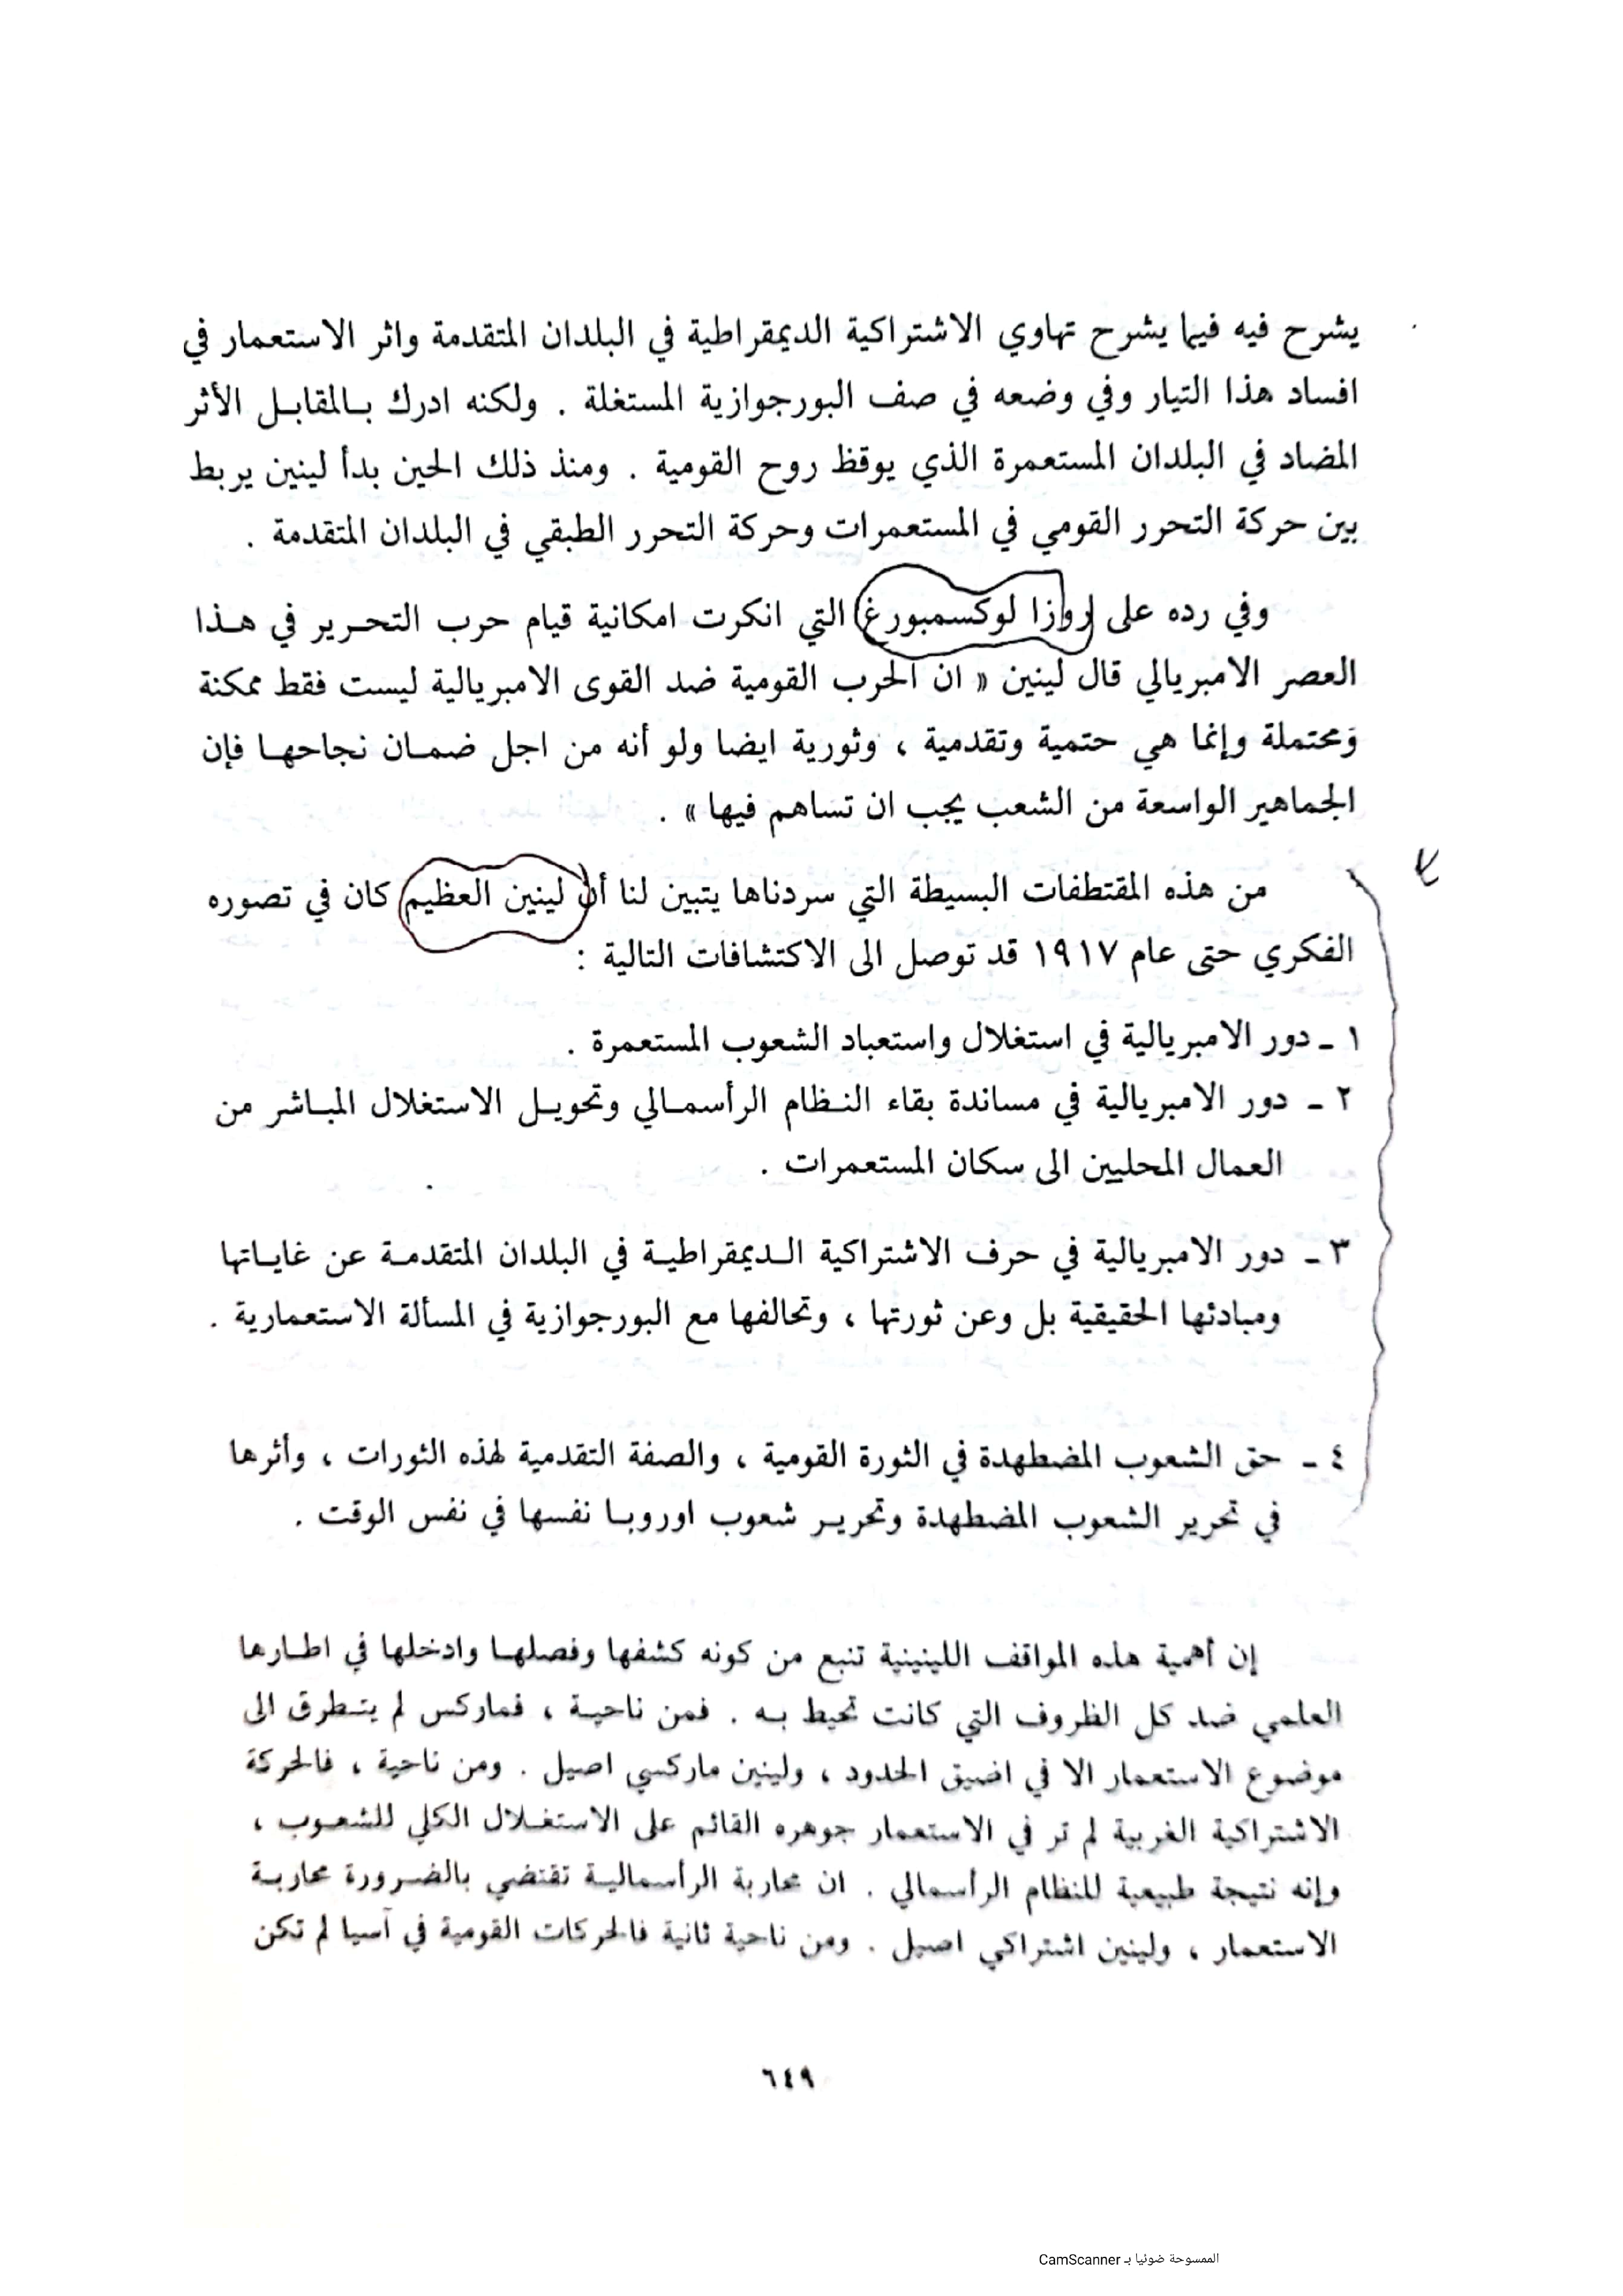 يشرح فيه فيما يشرح تهاوي الاشتراكية الديمقراطية في البلدان المتقدمة واثر الاستعمار في
افساد هذا التيار وفي وضعه في صف البورجوازية المستغلة . ولكنه ادرك بالمقابل الأثر
المضاد في البلدان المستعمرة الذي يوقظ روح القومية . ومنذ ذلك الحين بدأ لينين يربط
بين حركة التحرر القومي في المستعمرات وحركة التحرر الطبقي في البلدان المتقدمة .
وفي رده على روزا لوكسمبورغ التي انكرت امكانية قيام حرب التحرير في هذا
العصر الامبريالي قال لينين « ان الحرب القومية ضد القوى الامبريالية ليست فقط ممكنة
وَمحتملة وإنما هي حتمية وتقدمية ، وثورية ايضا ولو أنه من اجل ضمان نجاحها فإن
الجماهير الواسعة من الشعب يجب ان تساهم فيها » .
من هذه المقتطفات البسيطة التي سردناها يتبين لنا أن لينين العظيم كان في تصوره
الفكري حتى عام ١٩١٧ قد توصل الى الاكتشافات التالية :
١ - دور الامبريالية في استغلال واستعباد الشعوب المستعمرة .
٢ - دور الامبريالية في مساندة بقاء النظام الرأسمالي وتحويل الاستغلال المباشر من
العمال المحليين الى سكان المستعمرات .
٣ - دور الامبريالية في حرف الاشتراكية الديمقراطية في البلدان المتقدمة عن غاياتها
ومبادئها الحقيقية بل وعن ثورتها ، وتحالفها مع البورجوازية في المسألة الاستعمارية .
٤ - حق الشعوب المضطهدة في الثورة القومية ، والصفة التقدمية لهذه الثورات ، وأثرها
في تحرير الشعوب المضطهدة وتحرير شعوب اوروبا نفسها في نفس الوقت .
إن أهمية هذه المواقف اللينينية تنبع من كونه كشفها وفصلها وادخلها في اطارها
العلمي ضد كل الظروف التي كانت تحيط به . فمن ناحية ، فماركس لم يتطرق الى
موضوع الاستعمار الا في اضيق الحدود ، ولينين ماركسي اصيل . ومن ناحية ، فالحركة
الاشتراكية الغربية لم تر في الاستعمار جوهره القائم على الاستغلال الكلي للشعوب ،
وإنه نتيجة طبيعية للنظام الرأسمالي . ان محاربة الرأسمالية تقتضي بالضرورة محاربة
الاستعمار ، ولينين اشتراكي اصيل . ومن ناحية ثانية فالحركات القومية في آسيا لم تكن
٦٤٩
الممسوحة ضوئيا بـ CamScanner